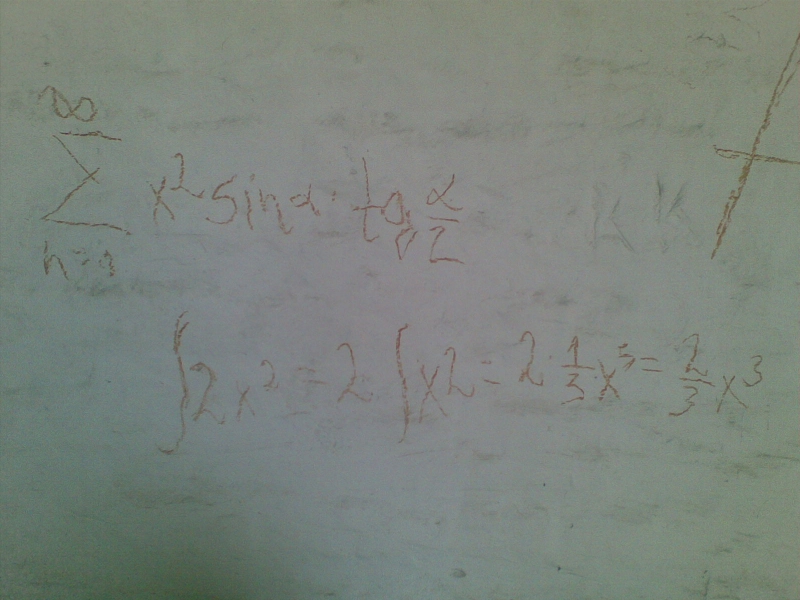 ∞
∑ x² sin α · tg α/2
n=0
∫2x² = 2 ∫x2 = 2 · 1/3 x³ = 2/3 x³